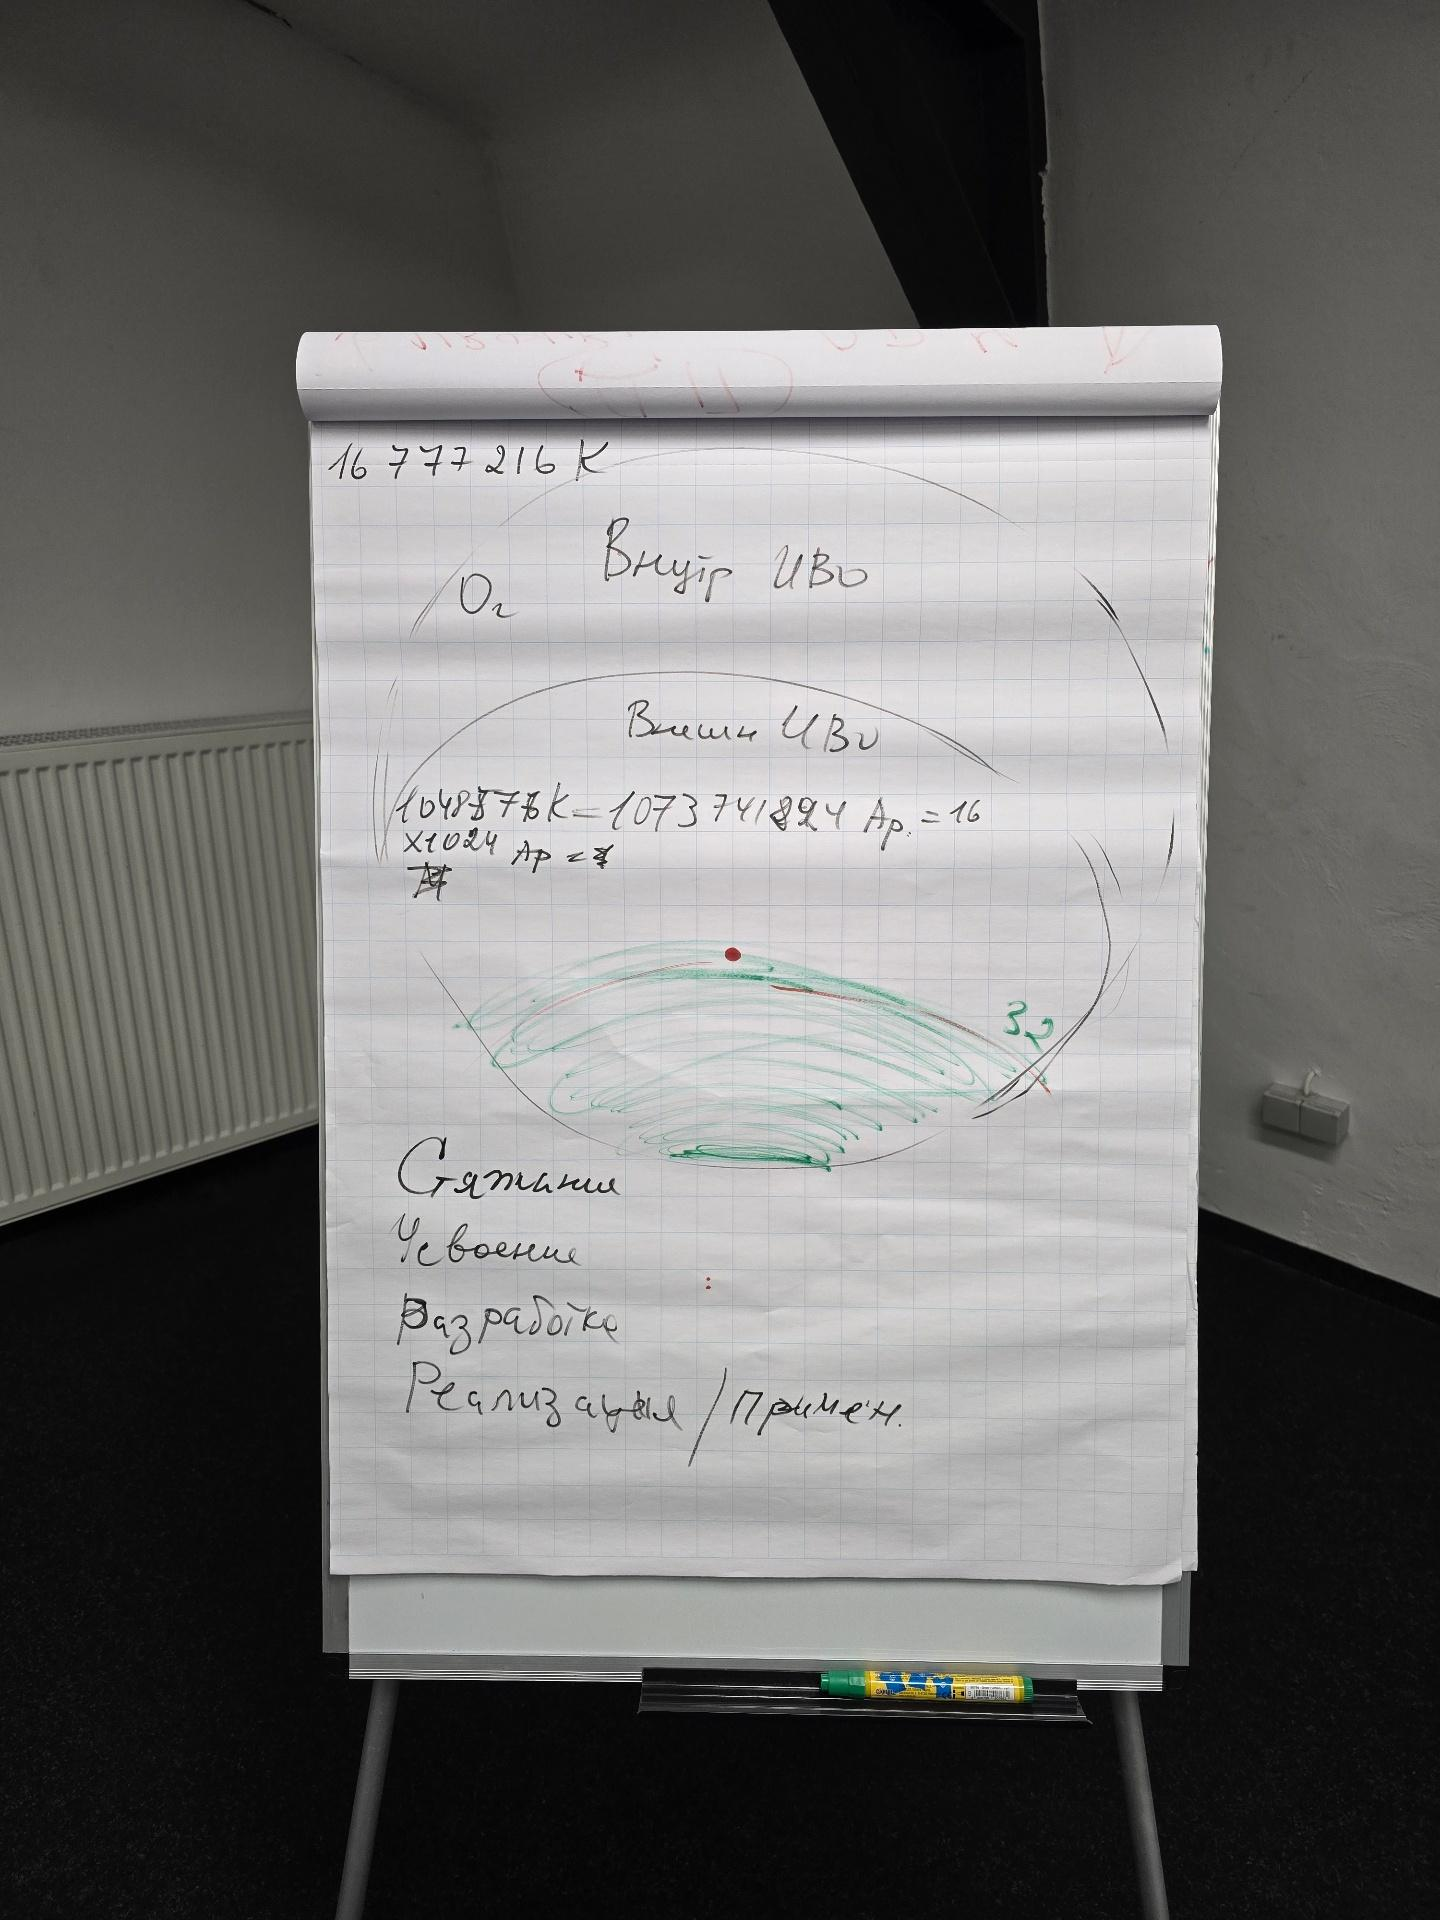 16 777 216 К
Внутр ИВО
Ог
Внешн ИВО
1048576К = 1073 741824 Ар. = 16
х1024 Ар =
32
Стяжание
Усвоение
Разработка
Реализация / Примен.